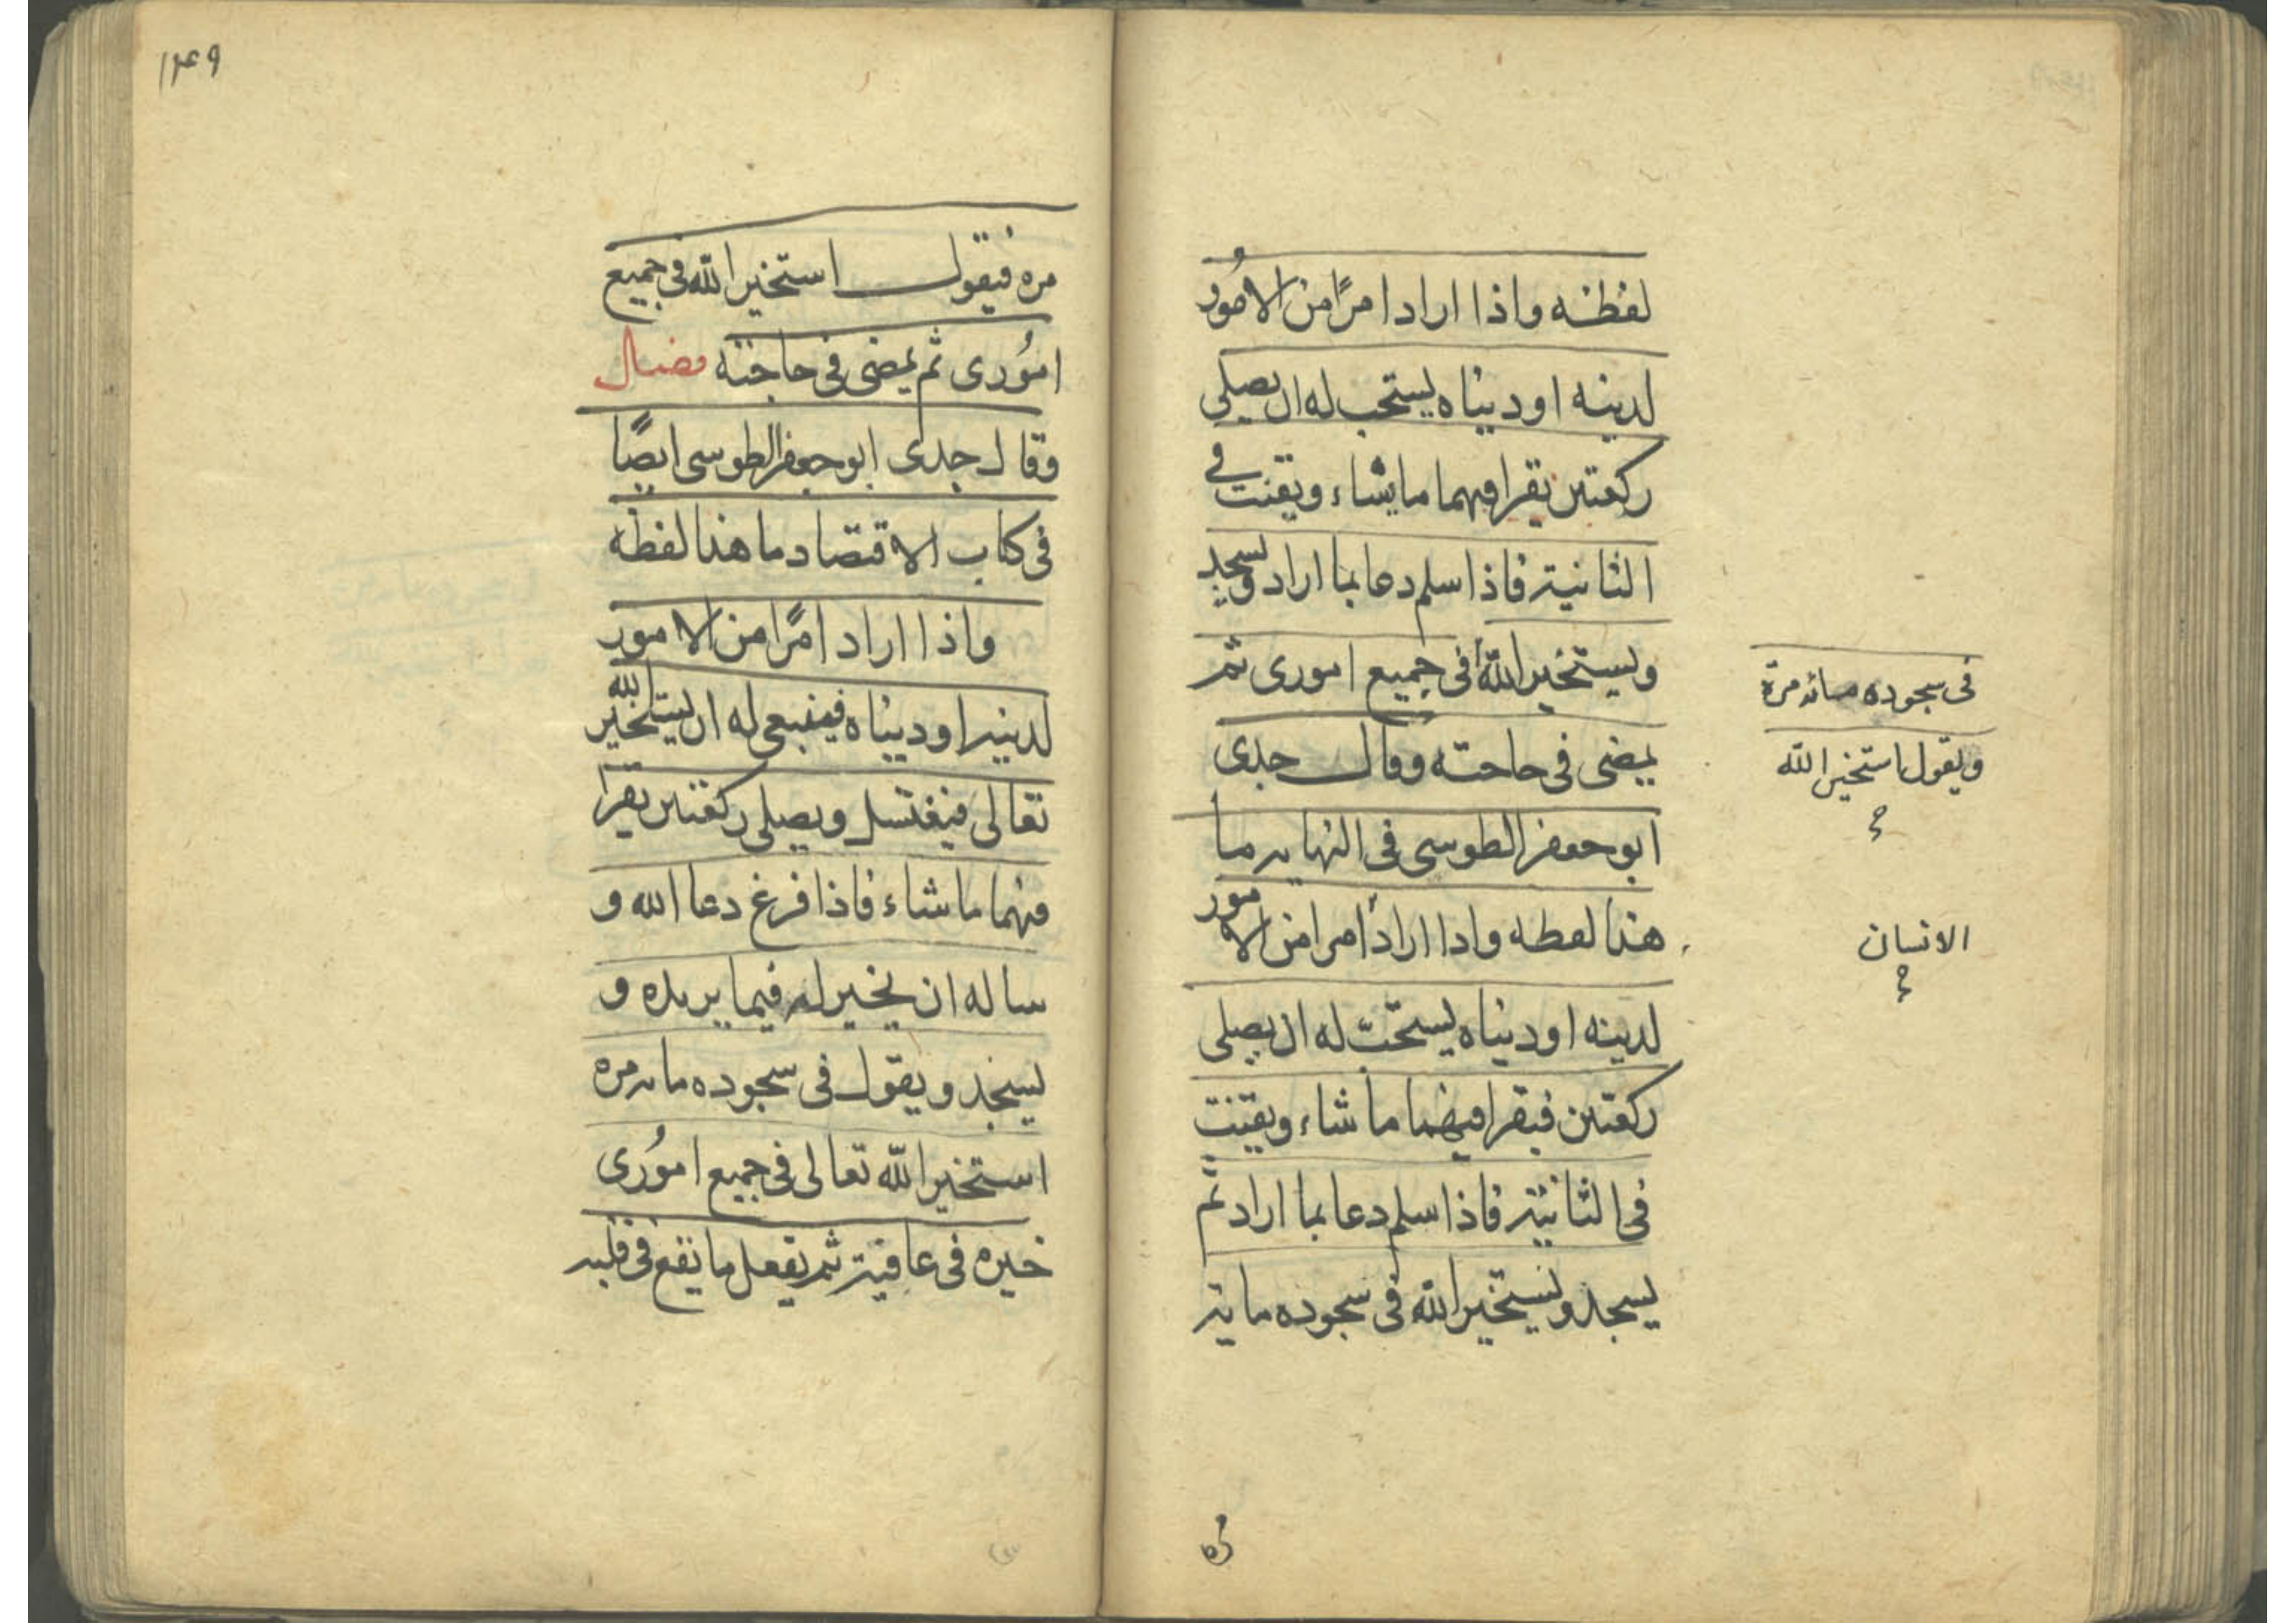 لفظه واذا اراد امرًا من الامُور
لدينه او دنياه يستحب له ان يصلي
ركعتين يقرا فيهما ما يشاء ويقنت في
الثانية فاذا سلم دعا بما اراد ويسجد
ويستخير الله في جميع اموري ثم
يمضى فى حاجته وقال جدى
ابو جعفر الطوسى فى النهايه ما
هذا لفظه واذا اراد امرا من الامور
لدينه او دنياه يستحبّ له ان يصلى
ركعتين فيقرا فيهما ما شاء ويقنت
فى الثانية فاذا سلم دعا بما اراد ثمّ
يسجد ويستخير الله فى سجوده ماية
فى سجوده مائه مرة
ويقول استخير الله
الانسان
مره
۱۴۹
مره فيقول استخير الله فى جميع
امُورى ثم يمضى فى حاجته فصل
وقال جدى ابو جعفر الطوسى ايضًا
فى كتاب الاقتصاد ما هذا لفظه
واذا اراد امرًا من الامور
لدينه او دنياه فينبغى له ان يستخير الله
تعالى فيغتسل ويصلى ركعتين يقرا
فيهما ما شاء فاذا فرغ دعا الله و
ساله ان يخير له فيما يريده و
يسجد ويقول فى سجوده مايه مره
استخير الله تعالى فى جميع امُورى
خيره فى عافية ثم يفعل ما يقع فى قلبه